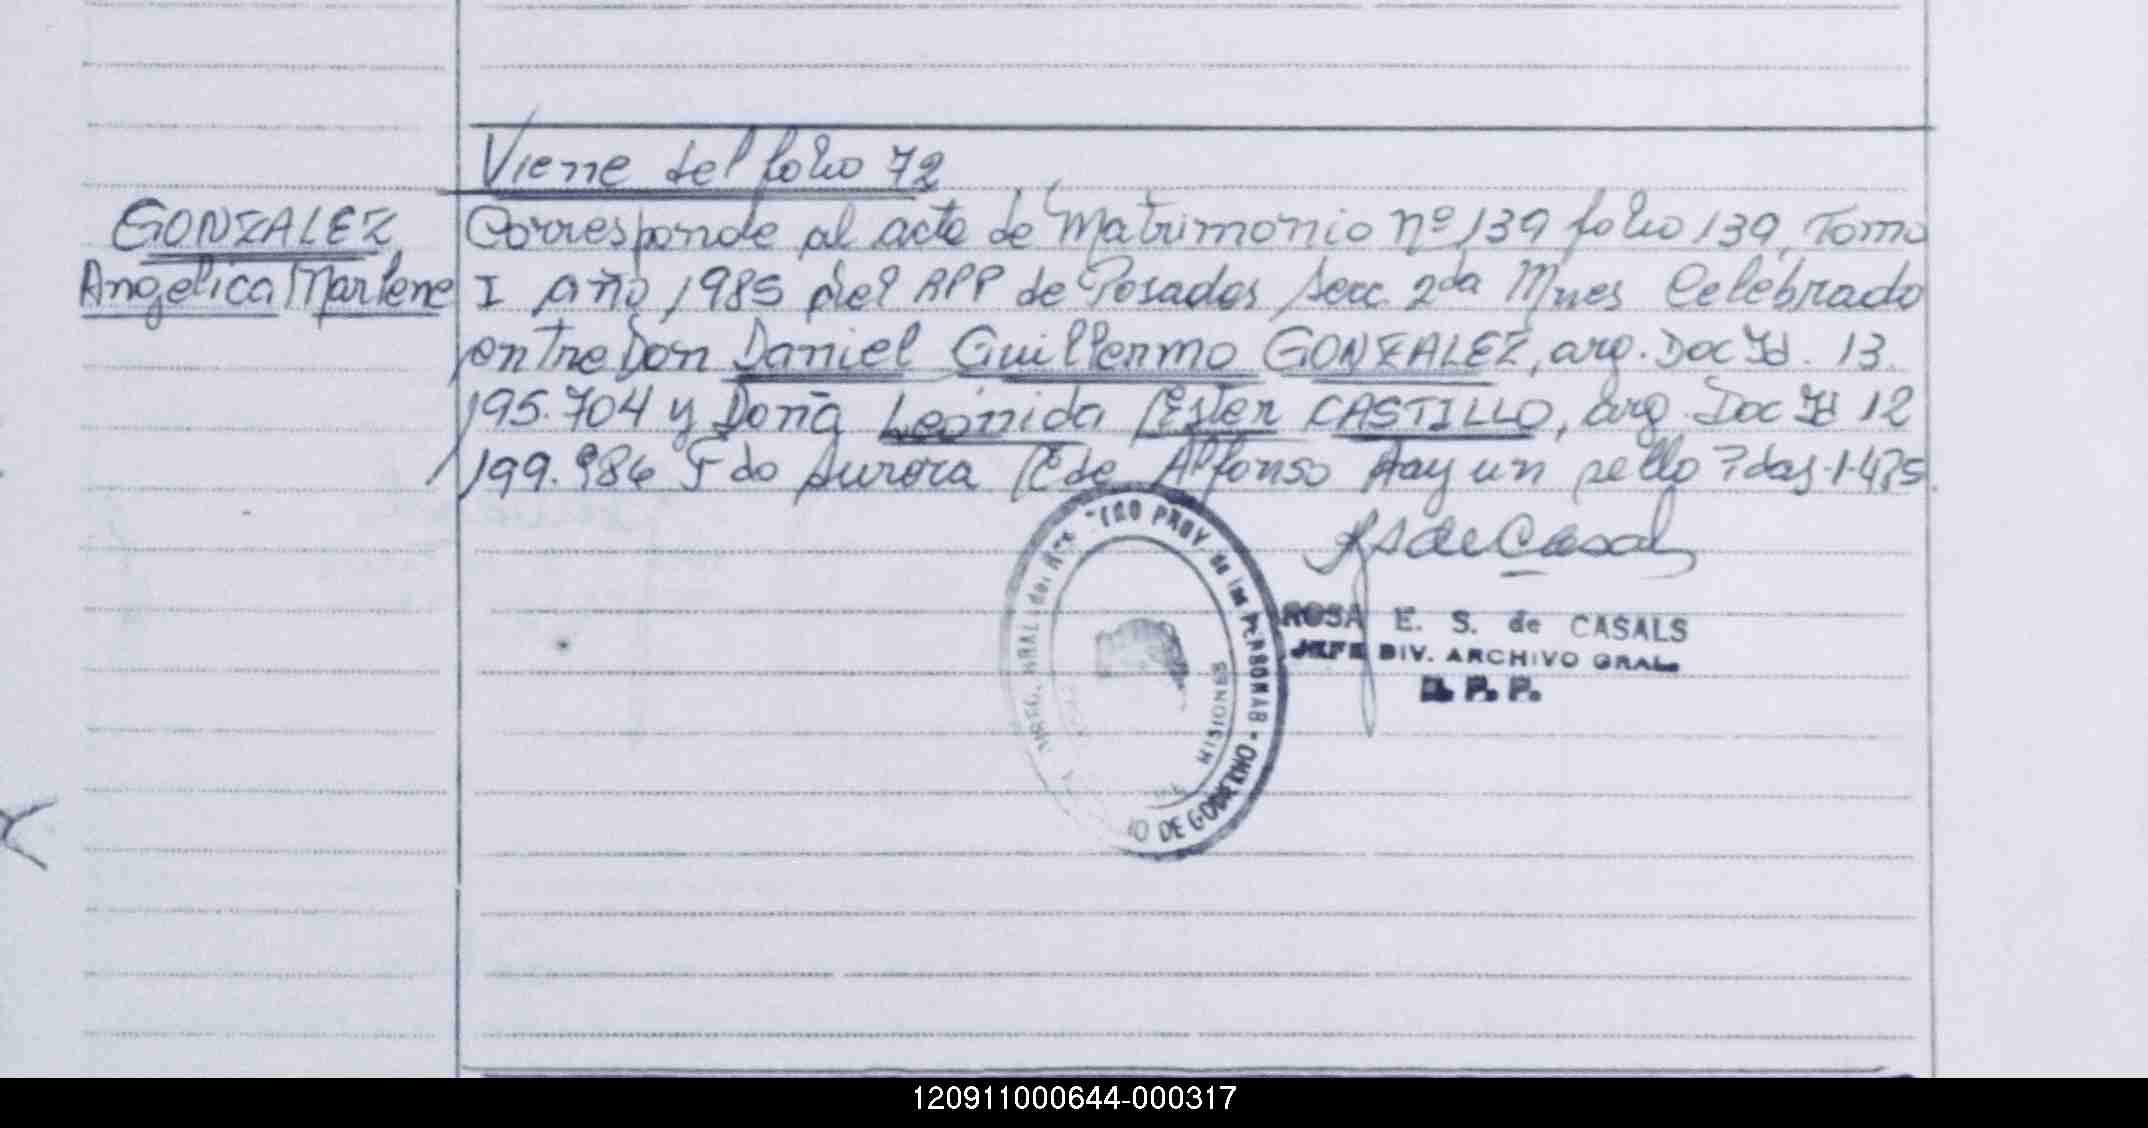 Viene del folio 72
GONZALEZ,
Angelica Marlene
Corresponde al acta de Matrimonio nº 139 folio 139, Tomo
I año 1985 del RPP de Posadas Secc. 2da Mnes Celebrado
entre Don Daniel Guillermo GONZALEZ, arg. Doc Id. 13.
195.704 y Doña Leónida Ester CASTILLO, arg. Doc Id 12
199.986 Fdo Aurora E de Alfonso Hay un sello
ROSA E. S. de CASALS
JEFE DIV. ARCHIVO GRAL.
R. P. P.
PROV. de las PERSONAS - DE GOBIERNO
MISIONES
120911000644-000317